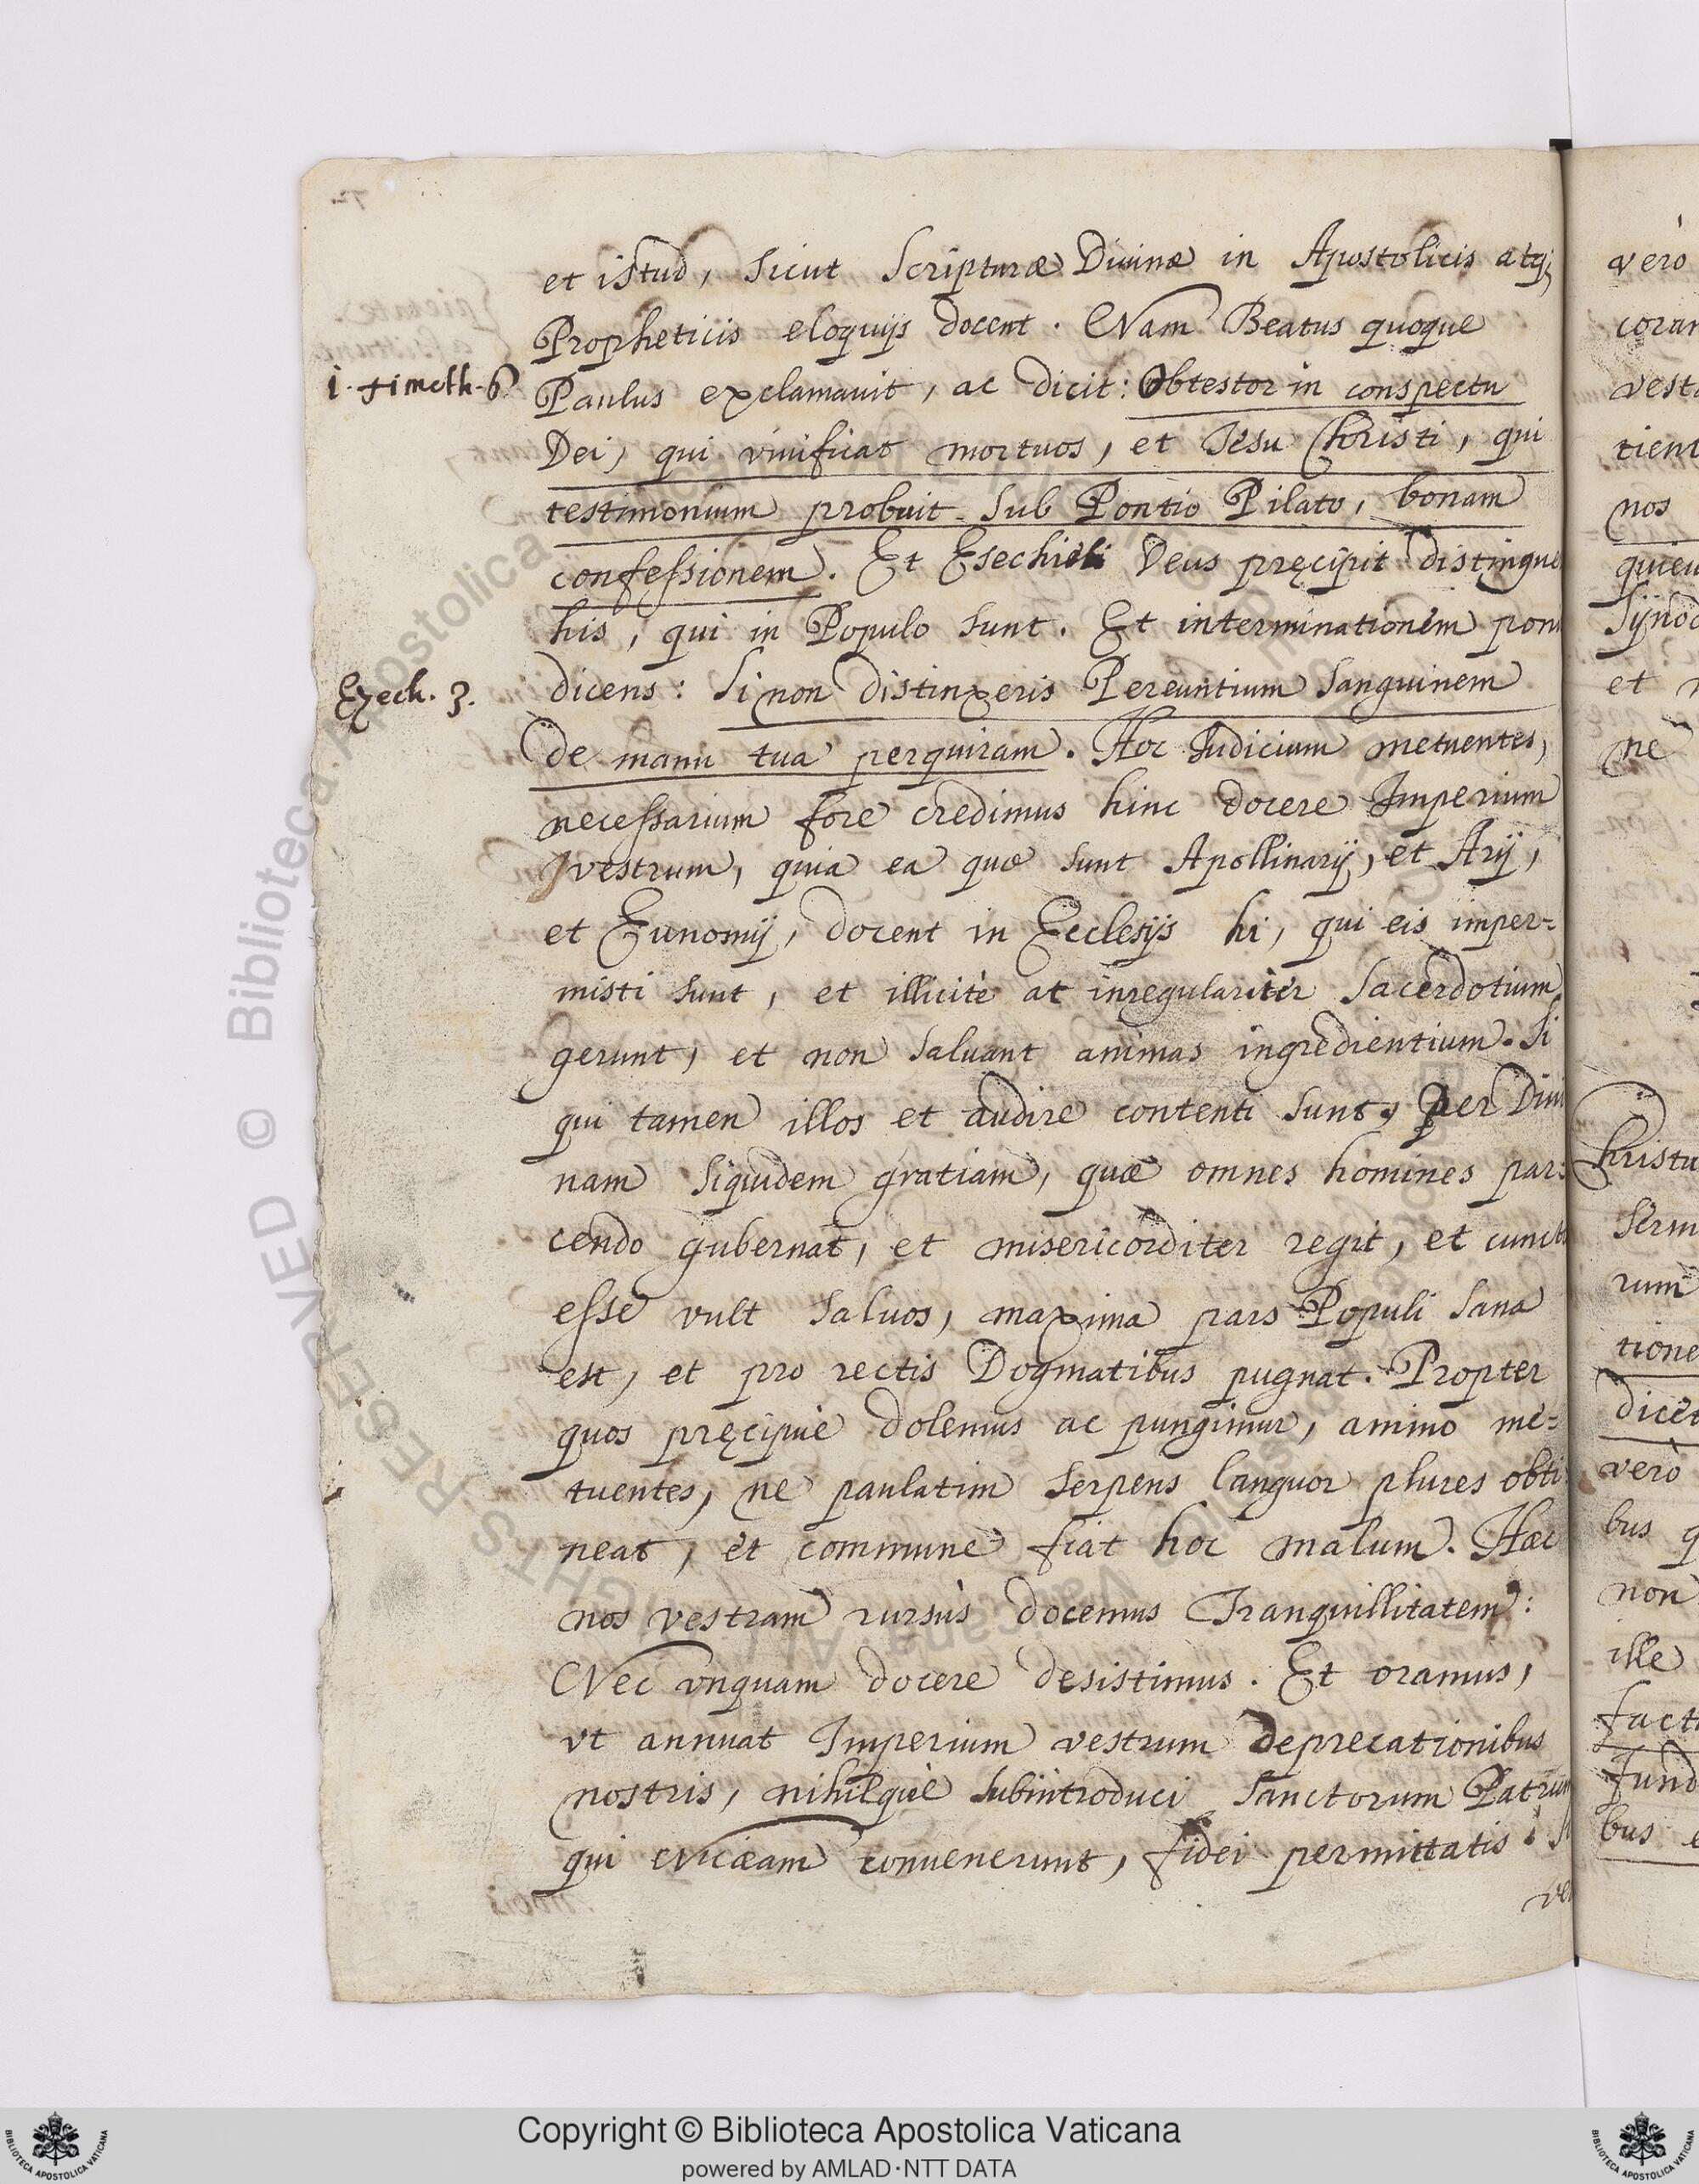 et istud, sicut Scripturæ Diuinæ in Apostolicis atq;
Propheticis eloquijs docent. Nam Beatus quoque
1. Timoth. 6.
Paulus exclamauit, ac dicit: Obtestor in conspectu
Dei, qui viuificat mortuos, et Iesu Christi, qui
testimonium probuit sub Pontio Pilato, bonam
confessionem. Et Esechieli Deus pręcipit distingue
his, qui in Populo sunt. Et interminationem poni
Ezech. 3.
dicens: Si non distinxeris Pereuntium sanguinem
de manu tua perquiram. Hoc Iudicium metuentes,
necessarium fore credimus hinc docere Imperium
vestrum, quia ea quæ sunt Apollinarij, et Arij,
et Eunomij, docent in Ecclesijs hi, qui eis imper=
misti sunt, et illicitè at inregularitèr Sacerdotium
gerunt, et non saluant animas ingredientium. Si
qui tamen illos et audire contenti sunt, per Diui
nam siquidem gratiam, quæ omnes homines par:
cendo gubernat, et misericorditer regit, et cunct
esse vult saluos, maxima pars Populi sana
est, et pro rectis Dogmatibus pugnat. Propter
quos pręcipuè dolemus ac pungimur, animo me=
tuentes, ne paulatim serpens languor plures obti
neat, et commune fiat hoc malum. Hæc
nos vestram rursùs docemus Tranquillitatem:
Nec vnquam docere desistimus. Et oramus,
vt annuat Imperium vestrum deprecationibus
nostris, nihilquè subintroduci Sanctorum Patrum
qui Nicæam conuenerunt, fidei permittatis: Si
ve
verò
coram
vest
tient
nos
quieu
Synod
et
ne
hristu
Serm
rum
tione
dicet
verò
bus q
non
ille
fact
fund
bus e
© Biblioteca Apostolica Vaticana
RIGHTS RESERVED
Copyright © Biblioteca Apostolica Vaticana
powered by AMLAD·NTT DATA
BIBLIOTECA APOSTOLICA VATICANA
BIBLIOTECA APOSTOLICA VATICANA